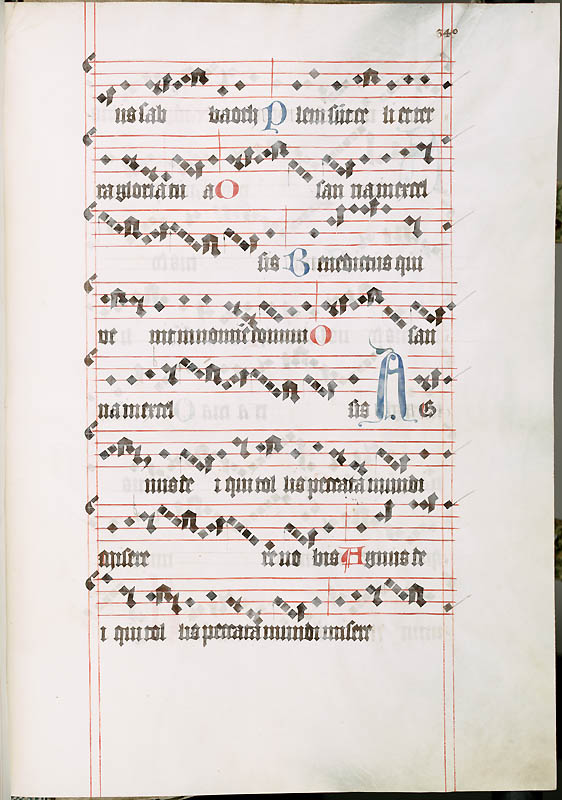 340
nus sab baoth Pleni sūt ce li et ter
ra gloria tu a O san na in excel
sis Benedictus qui
ve nit in nomine domini O san
na in excel sis AG
nus de i qui tol lis peccata mundi
mise re re no bis Agnus de
i qui tol lis peccata mundi miserr